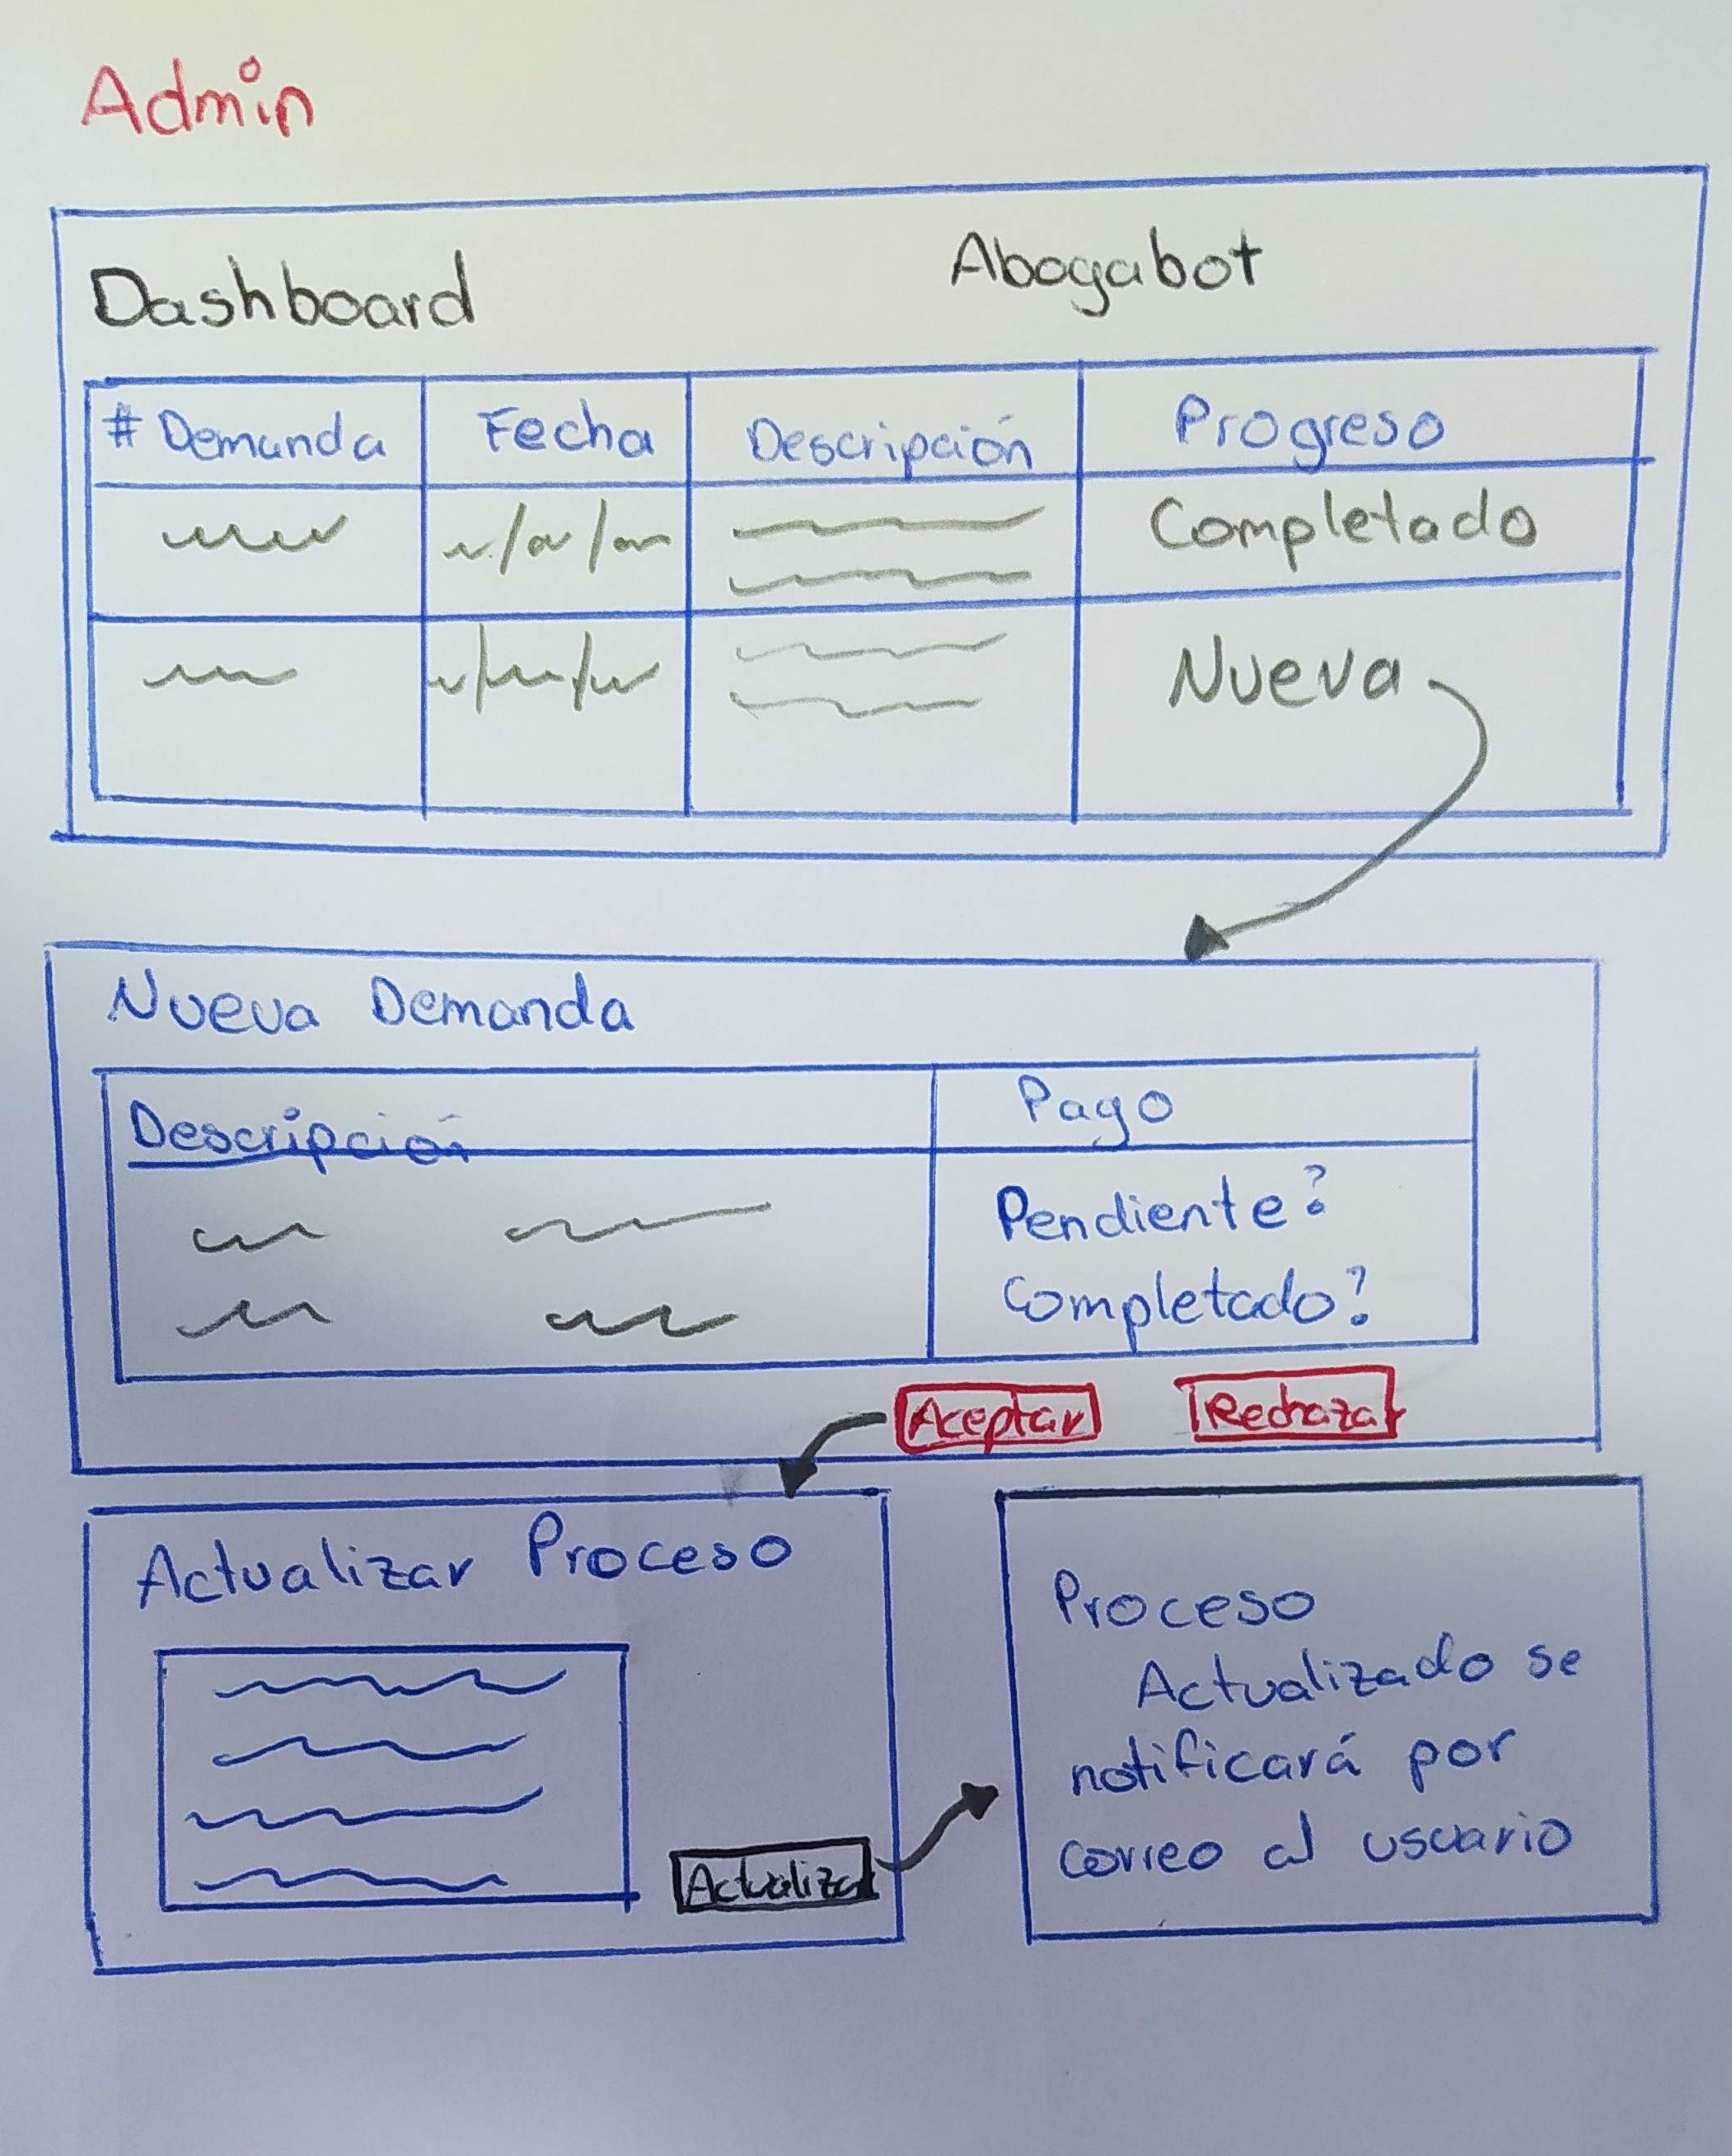 Admin
Dashboard Abogabot
# Demanda Fecha Descripción Progreso
Completado
Nueva
Nueva Demanda
Descripción Pago
Pendiente?
Completado?
Aceptar Rechazar
Actualizar Proceso
Actualizar
Proceso
Actualizado se
notificará por
correo al usuario